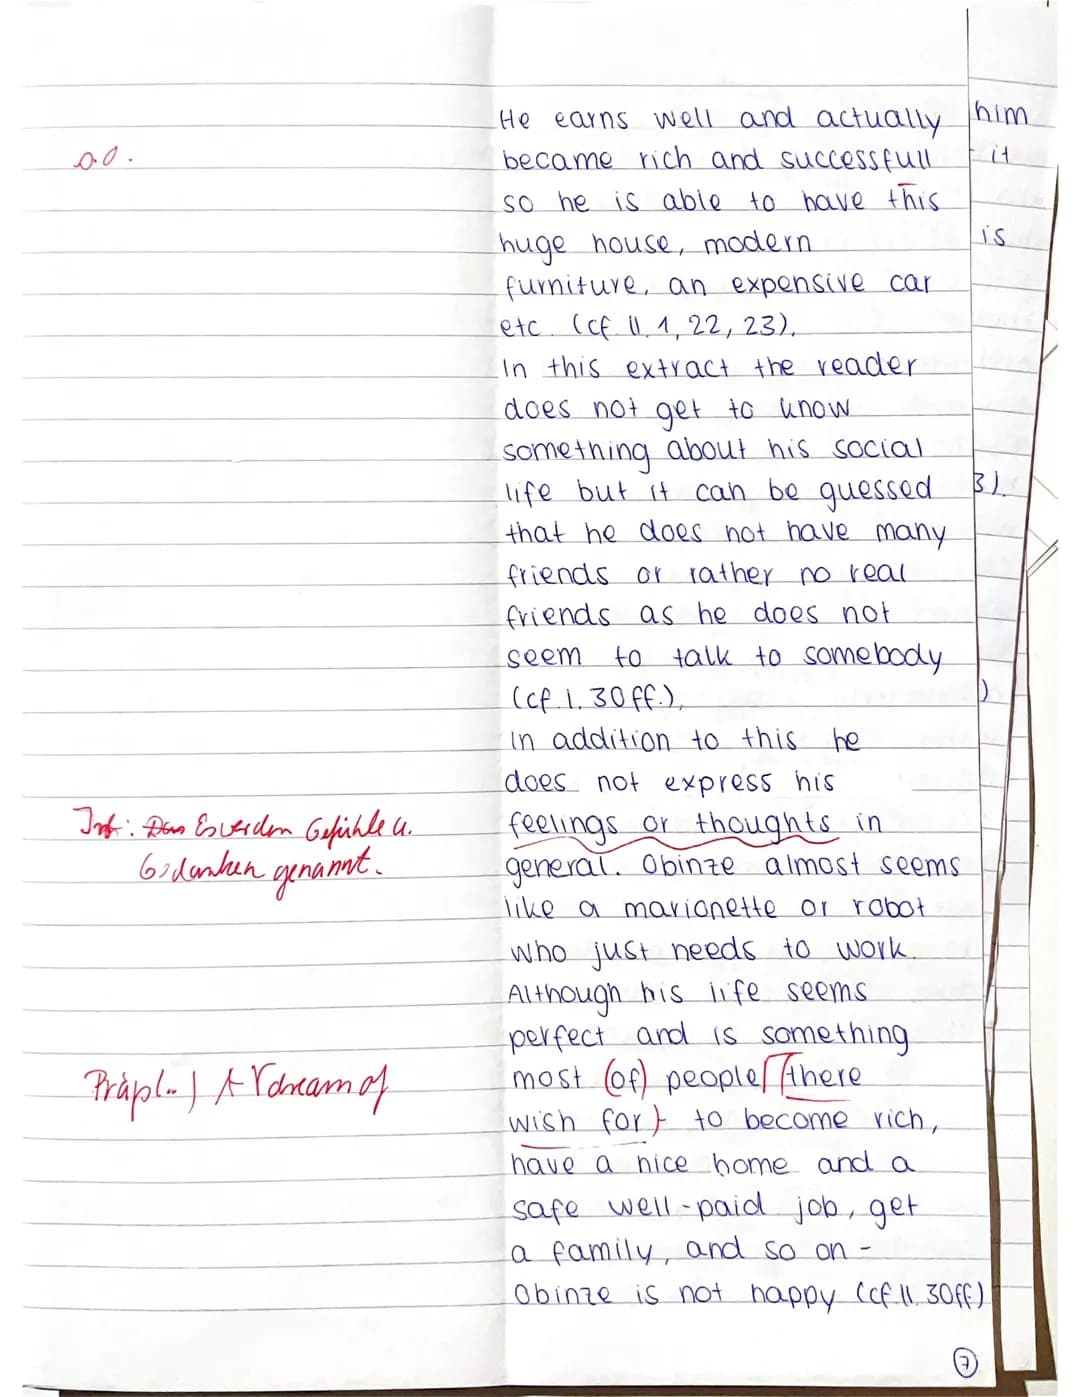 He earns well and actually
became rich and successfull
so he is able to have this
huge house, modern
furniture, an expensive car
etc. (cf. ll. 1, 22, 23).
In this extract the reader
does not get to know
something about his social
life but it can be guessed
that he does not have many
friends or rather no real
friends as he does not
seem to talk to somebody
(cf. l. 30 ff.).
In addition to this he
does not express his
feelings or thoughts in
general. Obinze almost seems
like a marionette or robot
who just needs to work.
Although his life seems
perfect and is something
most (of) people there
wish for to become rich,
have a nice home and a
safe well-paid job, get
a family, and so on -
Obinze is not happy (cf ll. 30ff)
7
o.o.
Inh: Das Es werden Gefühle u.
Gedanken genannt.
Präp. A dream of
him
it
is
3).
)